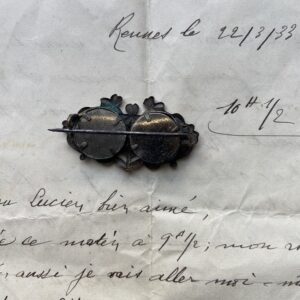 Rennes le 22/3/33
10H 1/2
Lucien bien aimé,
ce matin a 9h 1/2; mon
aussi je vais aller moi-m